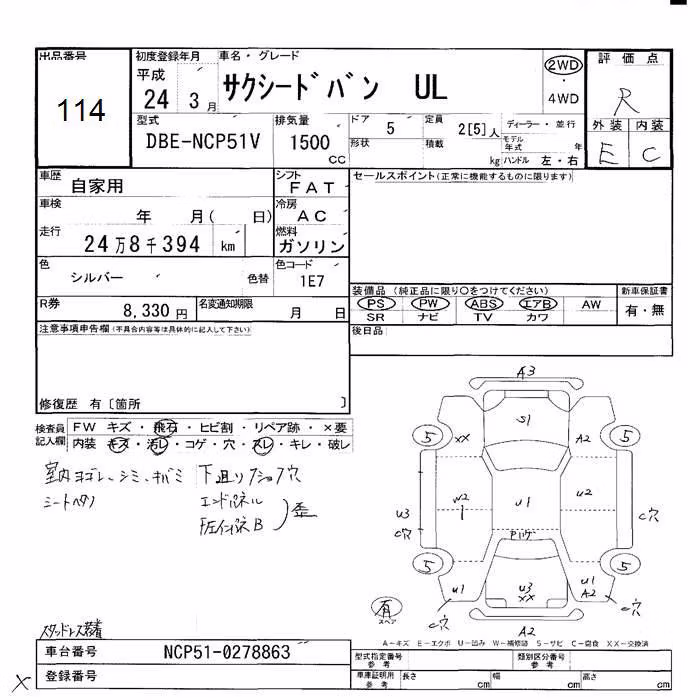 出品番号
114
初度登録年月
平成
24 3 月
車名・グレード
サクシードバン UL
2WD
4WD
評価点
R
外装 内装
E C
型式
DBE-NCP51V
排気量
1500
CC
ドア
5
定員
2[5]人
ディーラー・並行
形状
積載
kg
モデル年式
年
ハンドル 左・右
車歴
自家用
シフト
FAT
セールスポイント(正常に機能するものに限ります)
車検
年 月( 日)
冷房
AC
走行
24万8千394 km
燃料
ガソリン
色
シルバー
色替
色コード
1E7
装備品 (純正品に限り○をつけてください)
PS PW ABS エアB AW
SR ナビ TV カワ
新車保証書
有・無
R券
8,330円
名変通知期限
月 日
後日品
注意事項申告欄(不具合内容等は具体的に記入して下さい)
修復歴 有〔箇所 〕
検査員記入欄
FW キズ・飛石・ヒビ割・リペア跡・×要
内装 キズ・汚レ・コゲ・穴・スレ・キレ・破レ
室内ヨゴレ、シミ、キバミ
シートヘタリ
下廻りフショク穴
エンドパネル
歪
A3
S1
5
XX
A2
5
U3
C穴
W2
1
U1
U2
C穴
5
5
U1
U3
XX
U1
A2
C穴
C穴
A2
有
スペア
A-キズ E-エクボ U-凹み W-補修跡 S-サビ C-腐食 XX-交換済
スタッドレス装着
車台番号
NCP51-0278863
登録番号
X
型式指定番号
参考
類別区分番号
参考
車庫証明用
参考
長さ cm
幅 cm
高さ cm